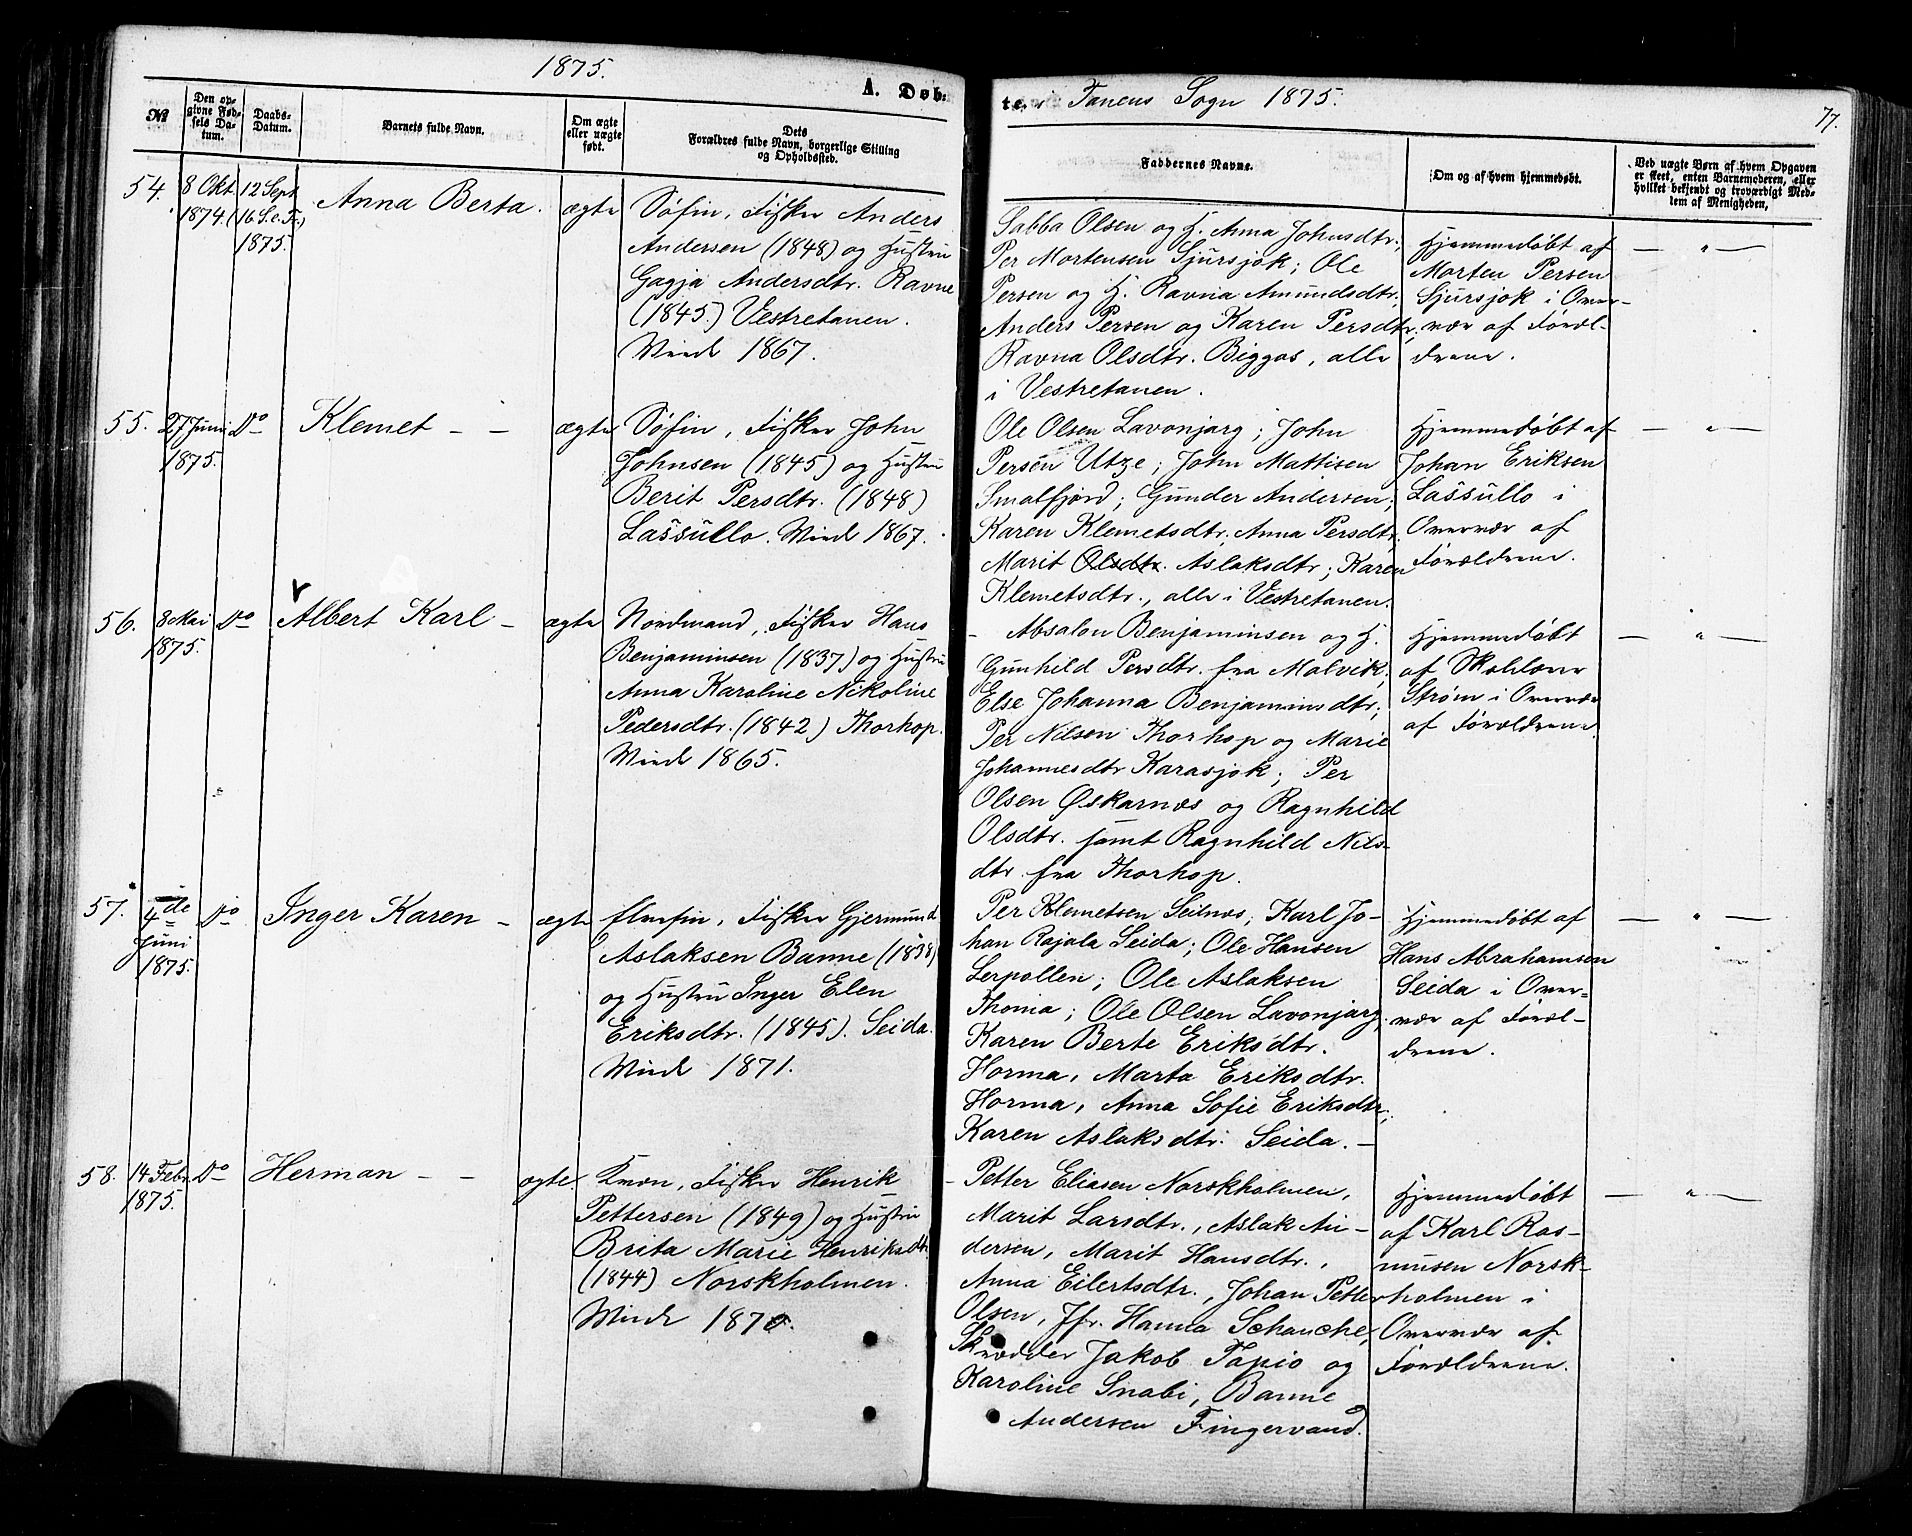 1875.
A. Døb-
№
Den op-
givne Fød-
sels Da-
tum.
Daabs-
Datum.
Barnets fulde Navn.
Om ægte
eller uægte
født.
Dets
Forældres fulde Navn, borgerlige Stilling
og Opholdssted.
54.
8 Okt.
1874.
12 Sept.
(16 S. e. Tr.)
1875.
Anna Berta.
ægte
Søfin, Fisker Anders
Andersen (1848) og Hustru
Gagja Andersdtr. Ravne
(1845.) Vestretanen.
Viede 1867.
55.
27 Juni
1875.
Do
Klemet - -
ægte
Søfin, Fisker John
Johnsen (1845) og Hustru
Berit Persdtr. (1848)
Lassullo. Viede 1867.
56.
8 Mai
1875.
Do
Albert Karl -
ægte
Nordmand, Fisker Hans
Benjaminsen (1837) og Hustru
Anna Karoline Nikoline
Pedersdtr. (1842) Thorhop.
Viede 1865.
57.
4de
Juni
1875.
Do
Inger Karen -
ægte
Elvefin, Fisker Gjermund
Aslaksen Banne (1838)
og Hustru Inger Elen
Eriksdtr. (1845). Seida.
Viede 1871.
58.
14 Febr.
1875.
Do
Herman - -
ægte.
Kvæn, Fisker Henrik
Pettersen (1849) og Hustru
Brita Marie Henriksdtr
(1844) Norskholmen.
Viede 1870.
te, i Tanens Sogn 1875.
77.
Faddernes Navne.
Om og af hvem hjemmedøbt.
Ved uægte Børn af hvem Opgaven
er skeet, enten Barnemoderen, eller
hvilket bekjendt og troværdigt Med-
lem af Menigheden,
Sabba Olsen og H. Anna Johnsdtr.;
Per Mortensen Sjursjok; Ole
Persen og H. Ravna Amundsdtr.
Anders Persen og Karen Persdtr;
Ravna Olsdtr. Biggos, alle
i Vestretanen.
Hjemmedøbt af
Morten Persen
Sjursjok i Over-
vær af Foræl-
drene.
— " —
Ole Olsen Lavonjarg; John
Persen Utze; John Mattisen
Smalfjord; Gunder Andersen;
Karen Klemetsdtr; Anna Persdtr,
Marit Olsdtr. Aslaksdtr; Karen
Klemetsdtr., alle i Vestretanen.
Hjemmedøbt af
Johan Eriksen
Lassullo i
Overvær af
Forældrene.
— " —
- Absalon Benjaminsen og H.
Gunhild Persdtr. fra Malvik;
Else Johanna Benjaminsdtr;
Per Nilsen Thorhop og Marie
Johannesdtr Karasjok; Per
Olsen Øskarnæs og Ragnhild
Olsdtr. samt Ragnhild Nils-
dtr. fra Thorhop.
Hjemmedøbt
af Skolelærer
Strøm i Overvær
af Forældrene.
— " —
Per Klemetsen Seilnæs; Karl Jo-
han Rajala Seida; Ole Hansen
Lerpollen; Ole Aslaksen
Thoma; Ole Olsen Lavonjarg;
Karen Berte Eriksdtr.
Horma, Marta Eriksdtr.
Horma, Anna Sofie Eriksdtr;
Karen Aslaksdtr. Seida. -
Hjemmedøbt af
Hans Abrahamsen
Seida i Over-
vær af Foræl-
drene.
— " —
- Petter Eliasen Norskholmen,
Marit Larsdtr., Aslak An-
dersen, Marit Hansdtr.,
Anna Eilertsdtr., Johan Petter
Olsen, Jfr. Hanna Schanche,
Skrædder Jakob Tapio og
Karoline Snabi, Banne
Andersen Fingervand.
Hjemmedøbt
af Karl Ras-
musen Norsk-
holmen i
Overvær af
Forældrene.
— " —